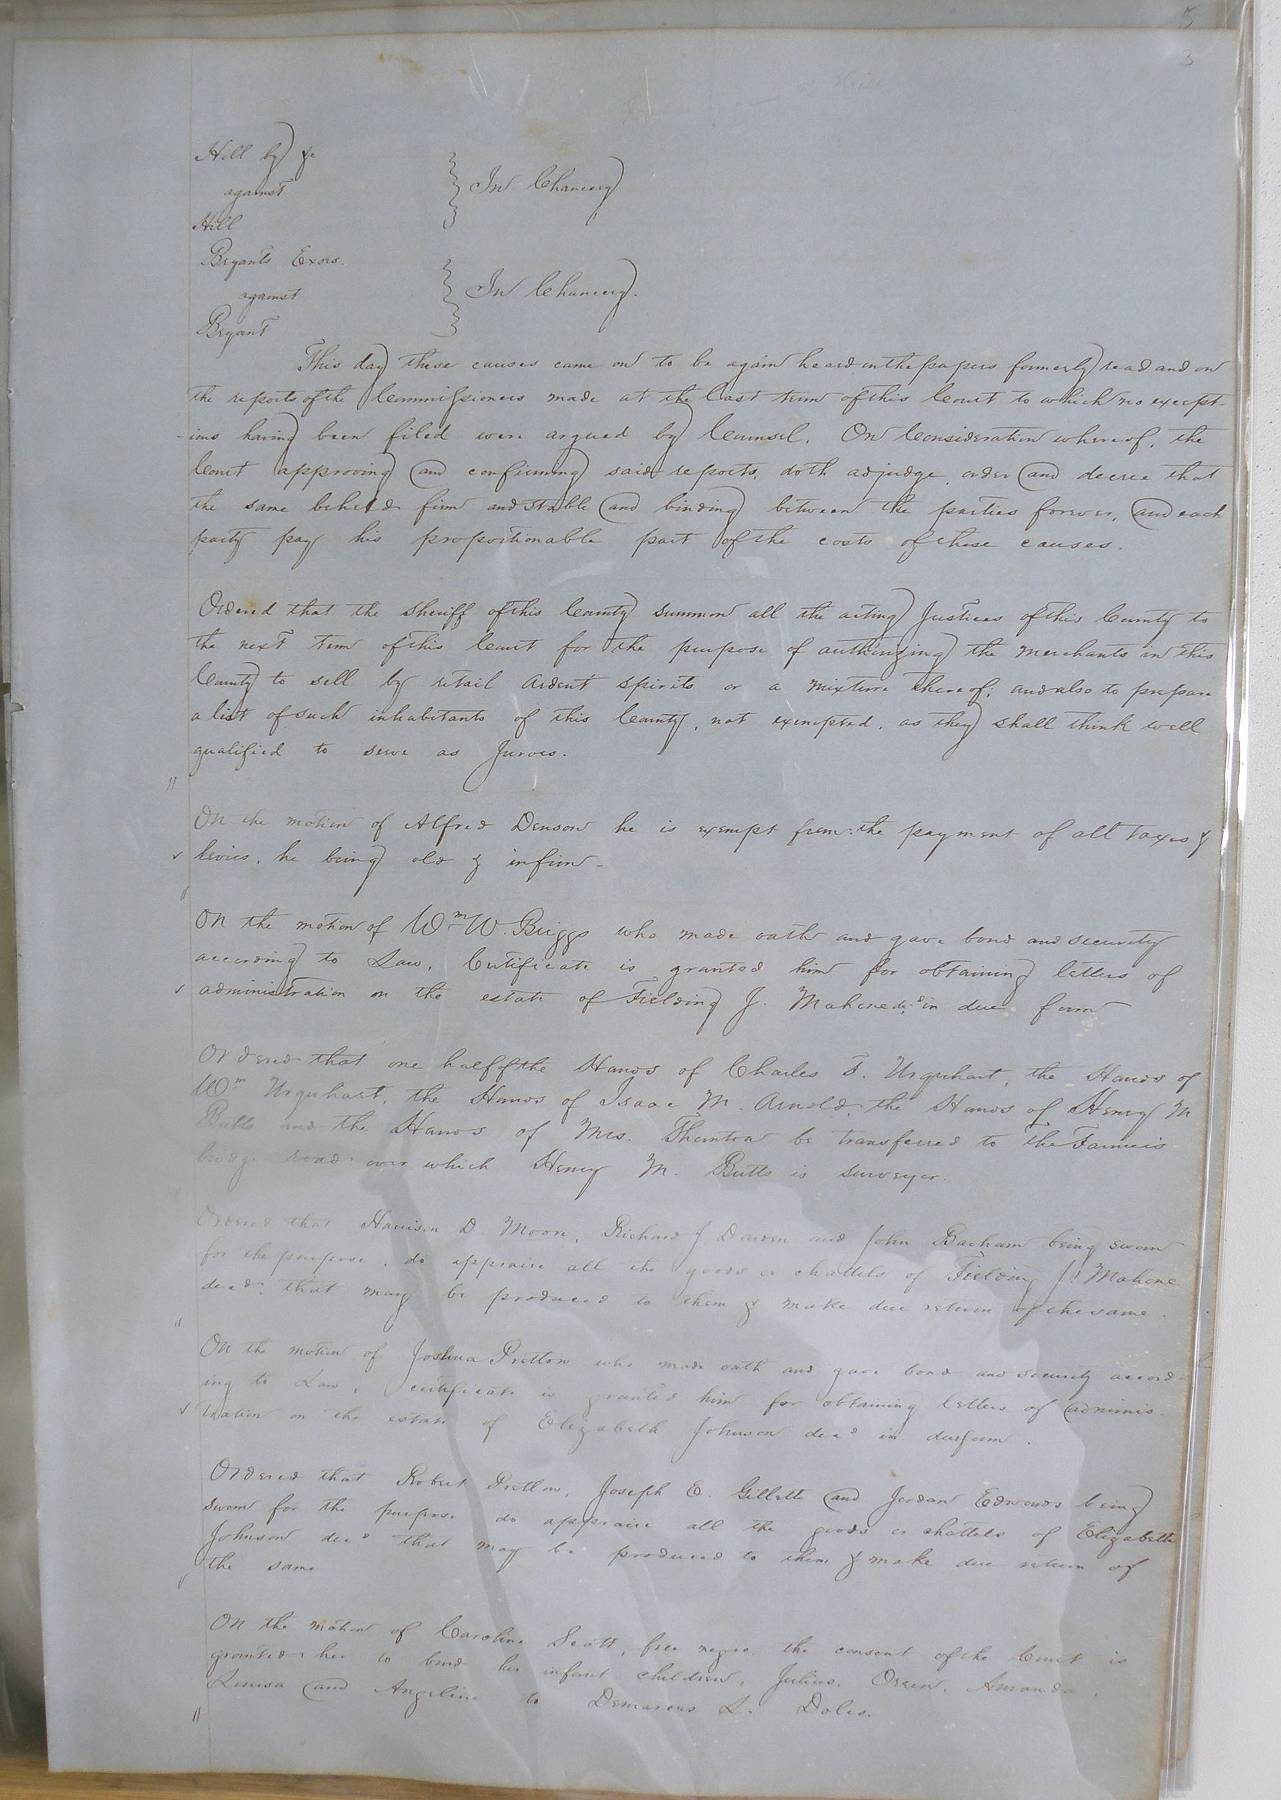 3
Hill by &c
against
Hill
In Chancery
Bryants Exors.
against
Bryant
In Chancery.
This day these causes came on to be again heard on the papers formerly read and on
the reports of the Commissioners made at the last term of this Court to which no except-
-ions having been filed were argued by Counsel. On Consideration whereof, the
Court approving and confirming said reports, doth adjudge, order and decree that
the same be held firm and stable and binding between the parties forever, and each
party pay his proportionable part of the costs of these causes.
Ordered that the Sheriff of this County summon all the acting Justices of this County to
the next term of this Court for the purpose of authorizing the merchants in this
County to sell by retail ardent spirits or a mixture thereof, and also to prepare
a list of such inhabitants of this County, not exempted, as they shall think well
qualified to serve as Jurors.
On the motion of Alfred Denson he is exempt from the payment of all taxes &
levies, he being old & infirm -
On the motion of Wm W. Briggs who made oath and gave bond and security
according to Law, Certificate is granted him for obtaining letters of
administration on the estate of Fielding J. Mahone decd in due form
Ordered that one half of the Hands of Charles F. Urquhart, the Hands of
Wm Urquhart, the Hands of Isaac M. Arnold, the Hands of Henry M
Butts and the Hands of Mrs. Thornton be transferred to the Farmers
bridge road over which Henry M. Butts is surveyor.
Ordered that Harrison D Moore, Richard J Darden and John Barham being sworn
for the purpose, do appraise all the goods & chattels of Fielding J. Mahone
decd. that may be produced to them & make due return of the same.
On the motion of Joshua Pretlow who made oath and gave bond and security accord-
ing to Law, Certificate is granted him for obtaining letters of adminis-
tration on the estate of Elizabeth Johnson decd in due form.
Ordered that Robert Pretlow, Joseph E. Gillette and Jordan Edwards being
sworn for the purpose do appraise all the goods & chattels of Elizabeth
Johnson decd that may be produced to them & make due return of
the same
On the motion of Caroline Scott, free negro, the consent of the Court is
granted her to bind her infant children, Julius, Orren, Amanda,
Louisa and Angeline to Demarcus L. Doles.